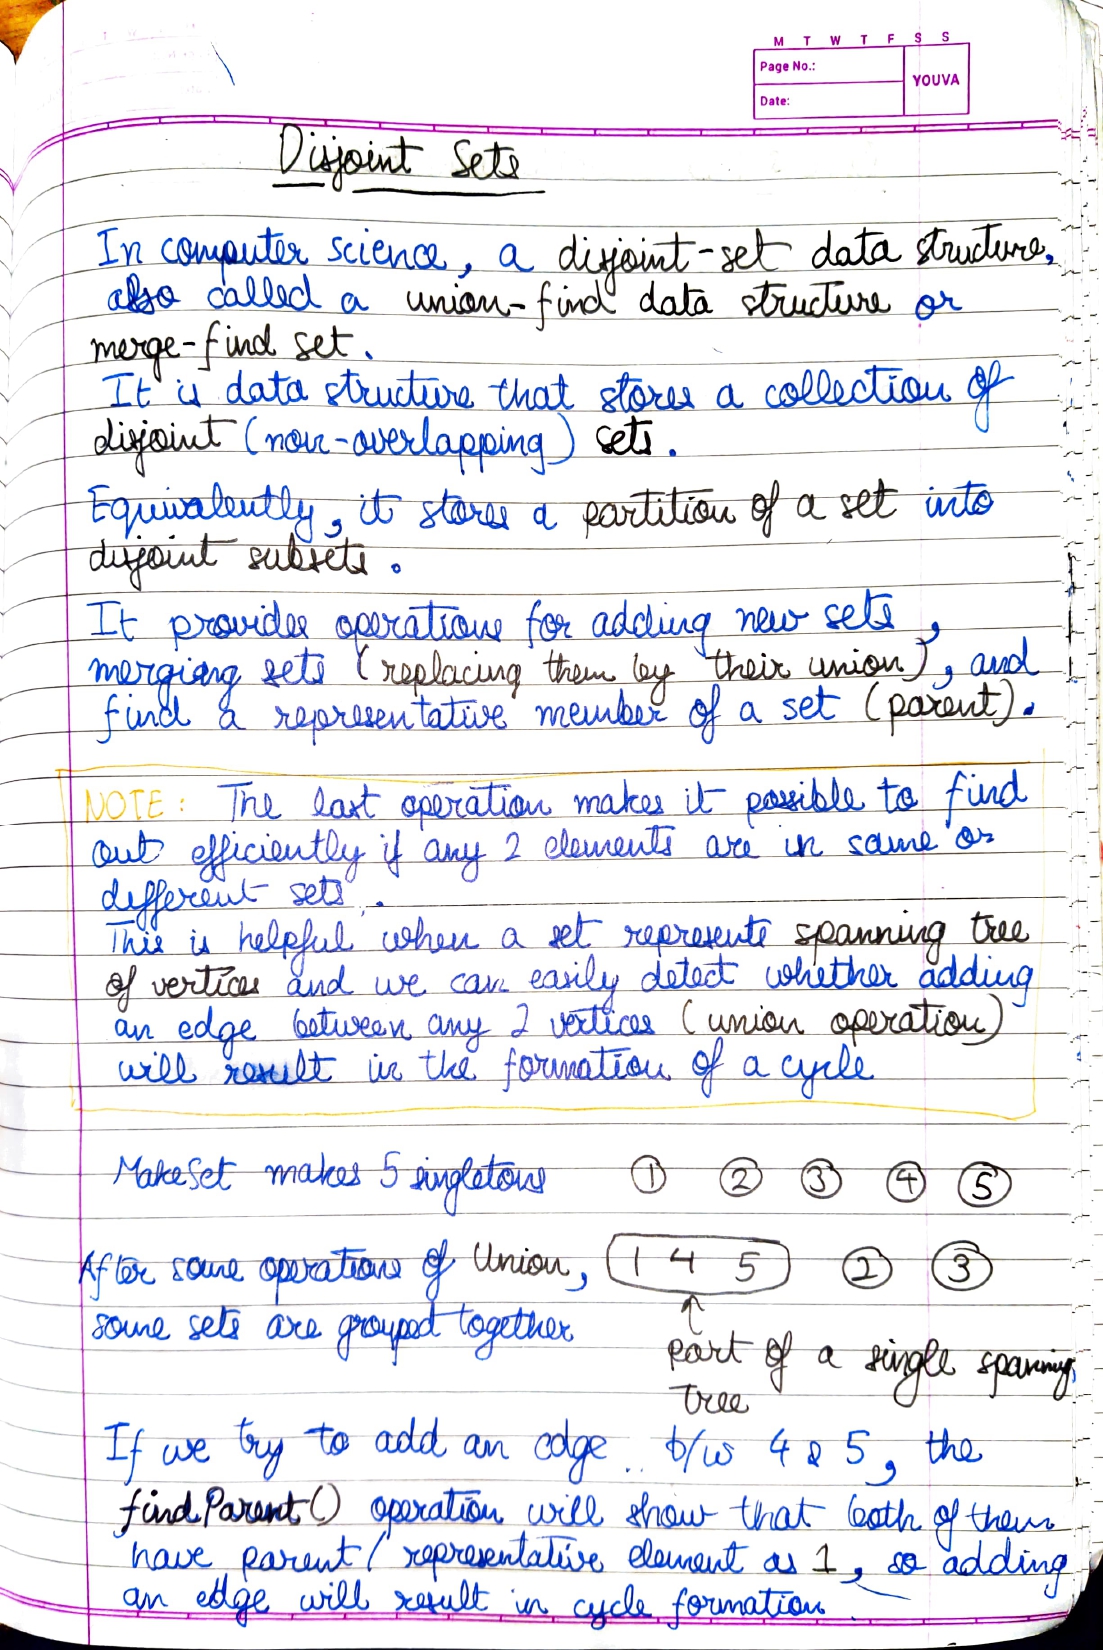 M T W T F S S
Page No.:
YOUVA
Date:
Disjoint Sets
In computer science, a disjoint-set data structure,
also called a union-find data structure or
merge-find set.
It is data structure that stores a collection of
disjoint (non-overlapping) sets.
Equivalently, it stores a partition of a set into
disjoint subsets.
It provides operations for adding new sets,
merging sets (replacing them by their union), and
find a representative member of a set (parent).
NOTE: The last operation makes it possible to find
out efficiently if any 2 elements are in same or
different sets.
This is helpful when a set represents spanning tree
of vertices and we can easily detect whether adding
an edge between any 2 vertices (union operation)
will result in the formation of a cycle
MakeSet makes 5 singletons 1 2 3 4 5
After some operations of Union, 1 4 5 2 3
some sets are grouped together
part of a single spanning
tree
If we try to add an edge b/w 4 & 5, the
findParent() operation will show that both of them
have parent/representative element as 1, so adding
an edge will result in cycle formation